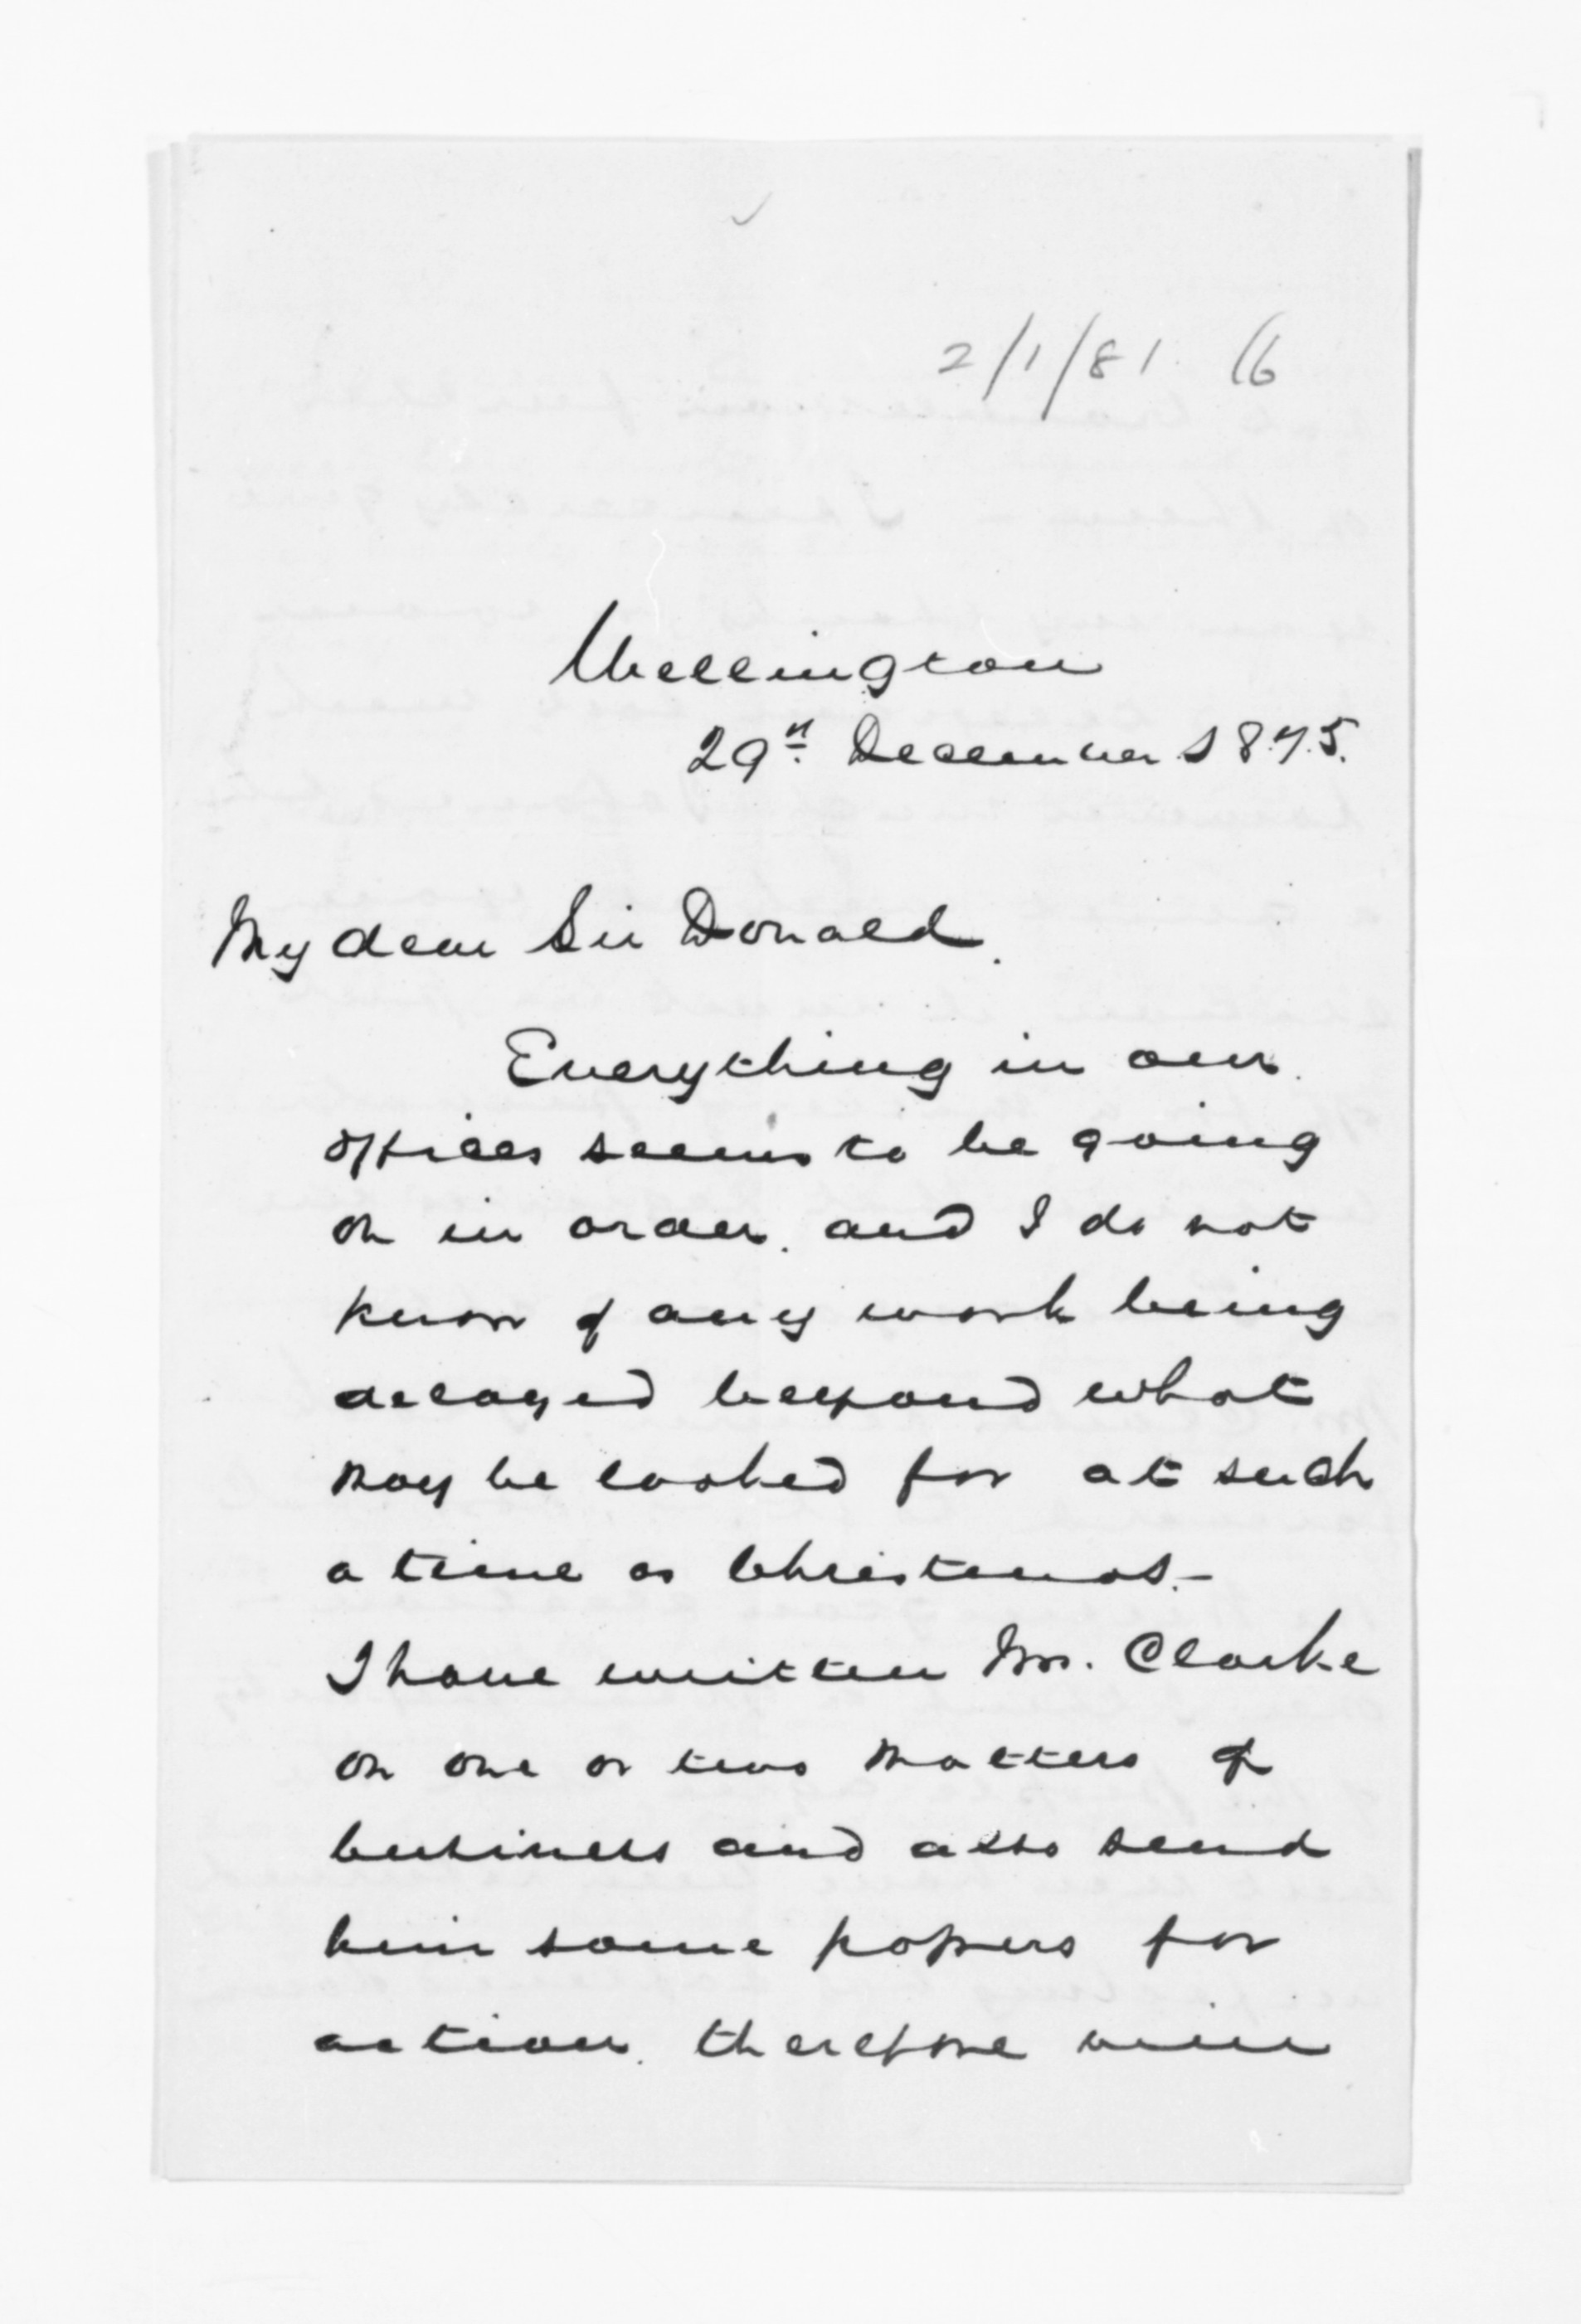 2/1/81 (6
Wellington
29th December 1875.
My dear Sir Donald.
Everything in our
offices seems to be going
on in order. and I do not
know of any work being
delayed beyond what
may be looked for at such
a time as Christmas.-
I have written Mr. Clarke
on one or two matters of
business and also send
him some papers for
action. therefore will